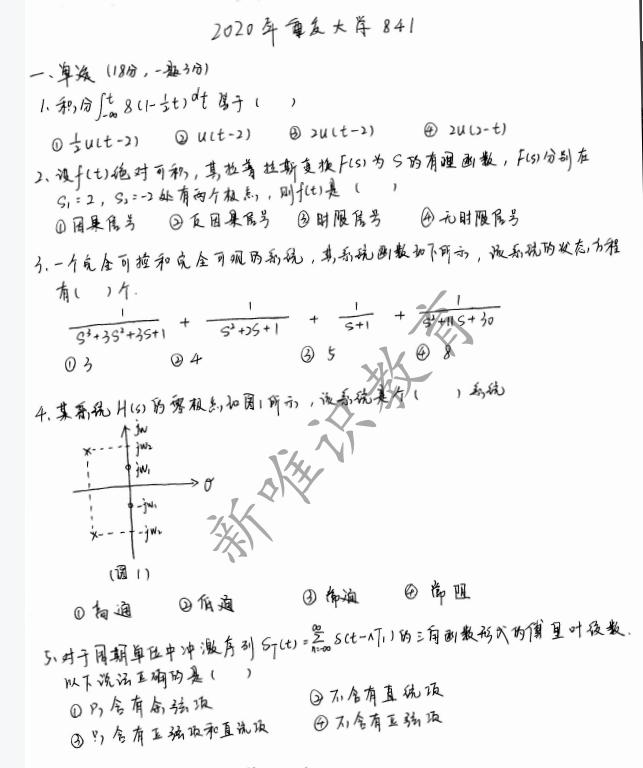 2020年重庆大学841
一、单选（18分，一题3分）
1. 积分∫_{-∞}^{t} δ(1-½t)dt 等于（ ）
① ½u(t-2) ② u(t-2) ③ 2u(t-2) ④ 2u(2-t)
2、设f(t)绝对可积，其拉普拉斯变换F(s)为S的有理函数，F(s)分别在
S₁=2，S₂=-2处有两个极点，则f(t)是（ ）
①因果信号 ②反因果信号 ③时限信号 ④无时限信号
3. 一个完全可控和完全可观的系统，其系统函数如下所示，该系统的状态方程
有（ ）个.
1/(S³+3S²+3S+1) + 1/(S²+2S+1) + 1/(S+1) + 1/(S²+11S+30)
① 3 ② 4 ③ 5 ④ 8
4. 某系统H(s)的零极点如图1所示，该系统是个（ ）系统
jw
jw₂
jw₁
σ
-jw₁
-jw₂
(图1)
①高通 ②低通 ③带通 ④带阻
5、对于周期单位冲激序列 S_T(t)=∑_{n=-∞}^{∞} δ(t-nT₁)的三角函数形式的傅里叶级数.
以下说法正确的是（ ）
①只含有余弦项 ②不含有直流项
③只含有正弦项和直流项 ④不含有正弦项
新唯识教育